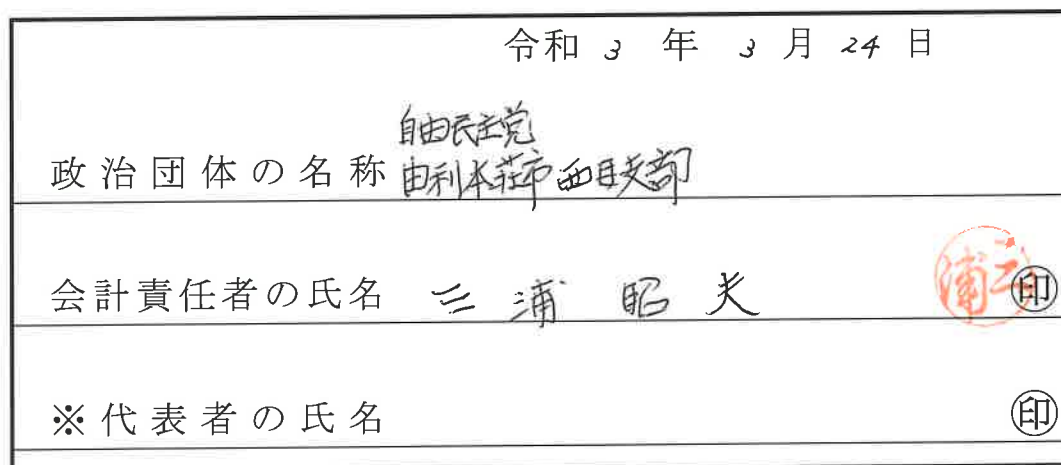 令和 3 年 3 月 24 日
自由民主党
政治団体の名称 由利本荘市西目支部
会計責任者の氏名 三浦 昭夫 三浦 印
※代表者の氏名 印